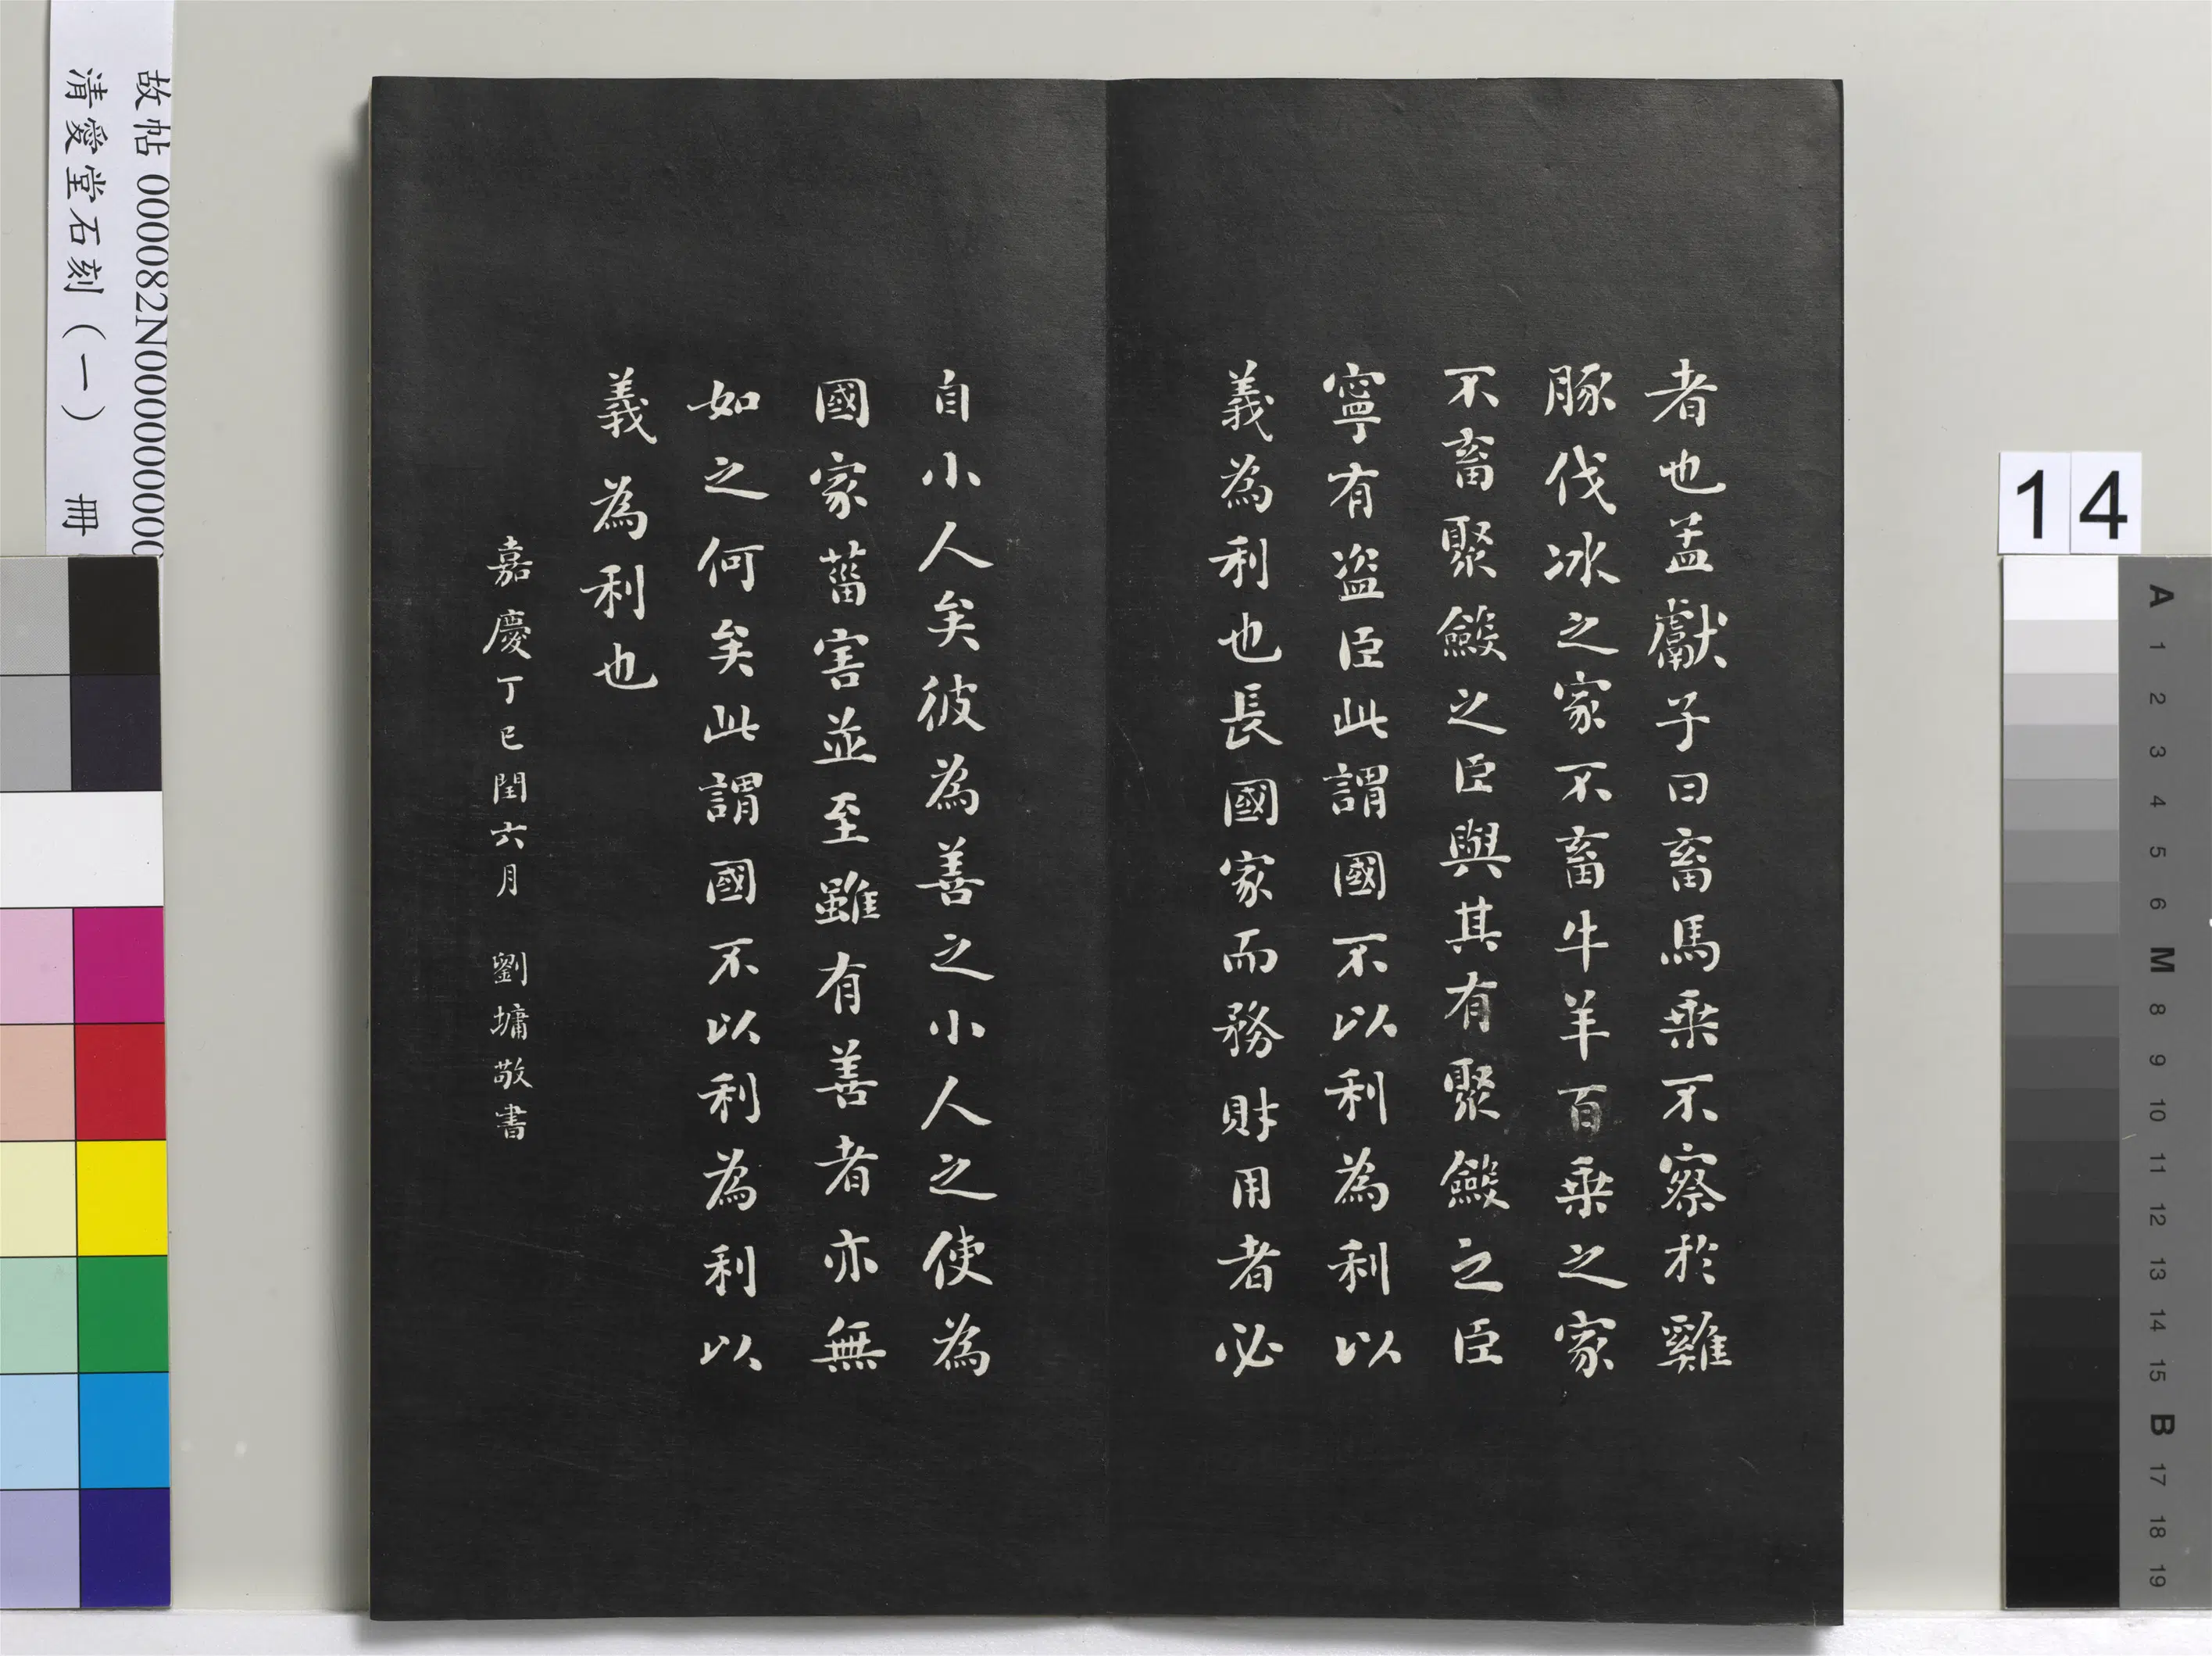 者也孟獻子曰畜馬乘不察於雞
豚伐冰之家不畜牛羊百乘之家
不畜聚斂之臣與其有聚斂之臣
寧有盗臣此謂國不以利為利以
義為利也長國家而務財用者必
自小人矣彼為善之小人之使為
國家菑害並至雖有善者亦無
如之何矣此謂國不以利為利以
義為利也
嘉慶丁巳閏六月 劉墉敬書
故帖 000082N000000000
清愛堂石刻（一） 冊
14
A 1 2 3 4 5 6 M 8 9 10 11 12 13 14 15 B 17 18 19